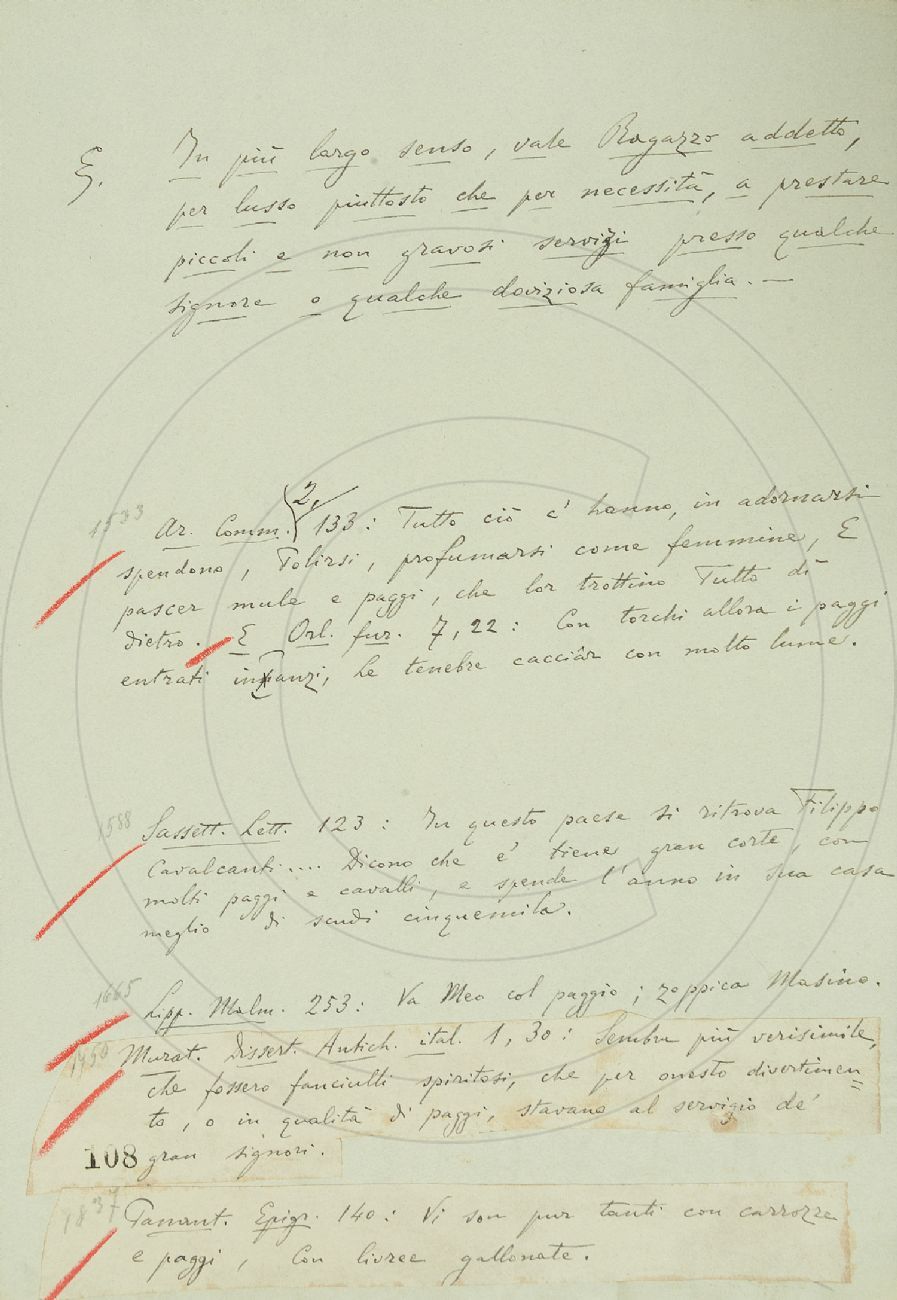 §. In più largo senso, vale Ragazzo addetto,
per lusso piuttosto che per necessità, a prestare
piccoli e non gravosi servizi presso qualche
signore o qualche doviziosa famiglia. —
1533 Ar. Comm. 2, 133: Tutto ciò c' hanno, in adornarsi
spendono, Polirsi, profumarsi come femmine, E
pascer mule e paggi, che lor trottino Tutto dì
dietro. E Orl. fur. 7, 22: Con torchi allora i paggi
entrati innanzi, Le tenebre cacciâr con molto lume.
1588 Sassett. Lett. 123: In questo paese si ritrova Filippo
Cavalcanti.... Dicono che e' tiene gran corte, con
molti paggi e cavalli, e spende l'anno in sua casa
meglio di scudi cinquemila.
1665 Lipp. Malm. 253: Va Meo col paggio; zoppica Masino.
1750 Murat. Dissert. Antich. ital. 1, 30: Sembra più verisimile,
che fossero fanciulli spiritosi, che per onesto divertimen=
to, o in qualità di paggi, stavano al servigio de'
108 gran signori.
1837 Panant. Epigr. 140: Vi son pur tanti con carrozze
e paggi, Con livree gallonate.